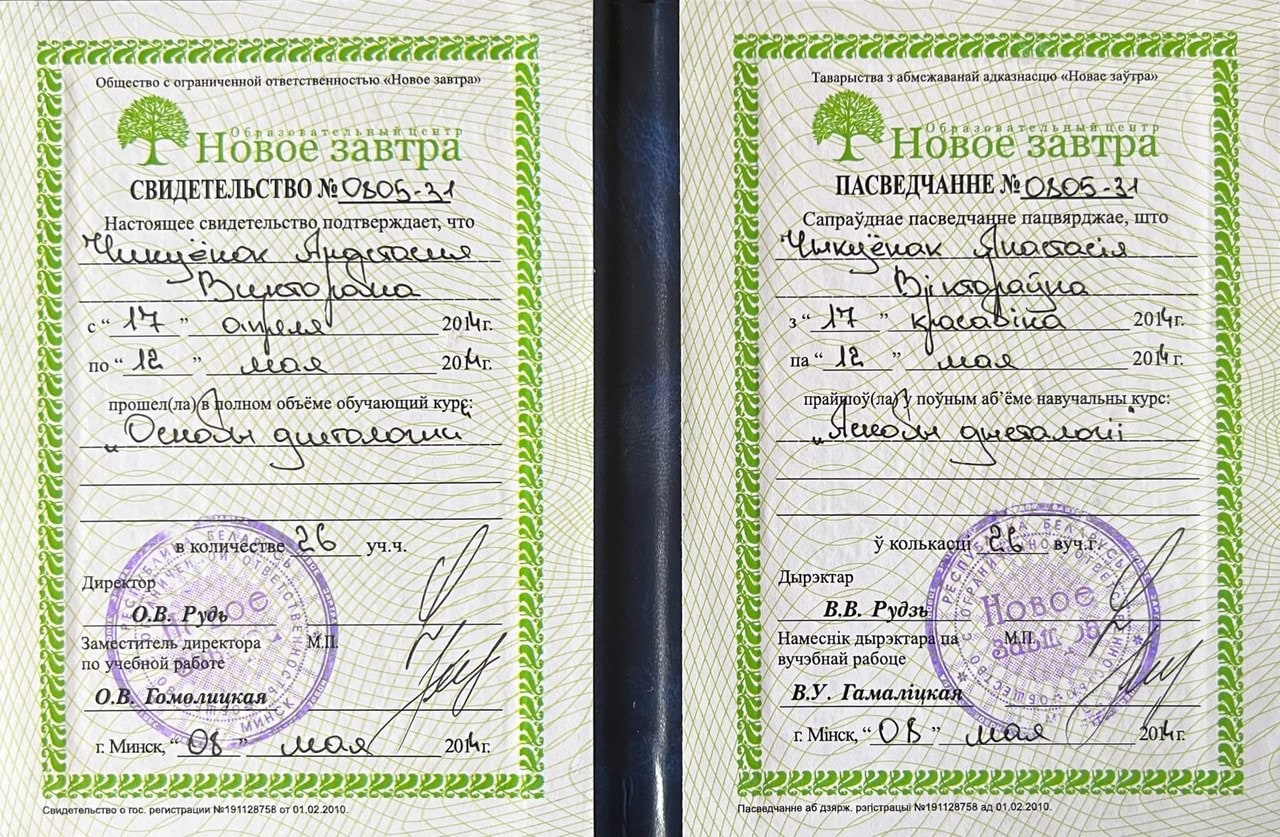 Общество с ограниченной ответственностью «Новое завтра»
Образовательный центр
Новое завтра
СВИДЕТЕЛЬСТВО № 0805-31
Настоящее свидетельство подтверждает, что
Анастасия
с “ 17 ” апреля 2014г.
по “ 12 ” мая 2014г.
прошел(ла) в полном объёме обучающий курс:
„Основы диетологии“
в количестве 26 уч.ч.
Директор
О.В. Рудь
Заместитель директора М.П.
по учебной работе
О.В. Гомолицкая
г. Минск, “ 08 ” мая 2014г.
Свидетельство о гос. регистрации №191128758 от 01.02.2010.
Таварыства з абмежаванай адказнасцю «Новае заўтра»
Образовательный центр
Новое завтра
ПАСВЕДЧАННЕ № 0805-31
Сапраўднае пасведчанне пацвярджае, што
Анастасія
Віктараўна
з “ 17 ” красавіка 2014г.
па “ 12 ” мая 2014г.
прайшоў(ла) ў поўным аб’ёме навучальны курс:
„Асновы дыеталогіі“
ў колькасці 26 вуч.г.
Дырэктар
В.В. Рудзь
Намеснік дырэктара па М.П.
вучэбнай рабоце
В.У. Гамаліцкая
г. Мінск, “ 08 ” мая 2014г.
Пасведчанне аб дзярж. рэгістрацыі №191128758 ад 01.02.2010.
РЕСПУБЛИКА БЕЛАРУСЬ
Новое
завтра
МИНСК